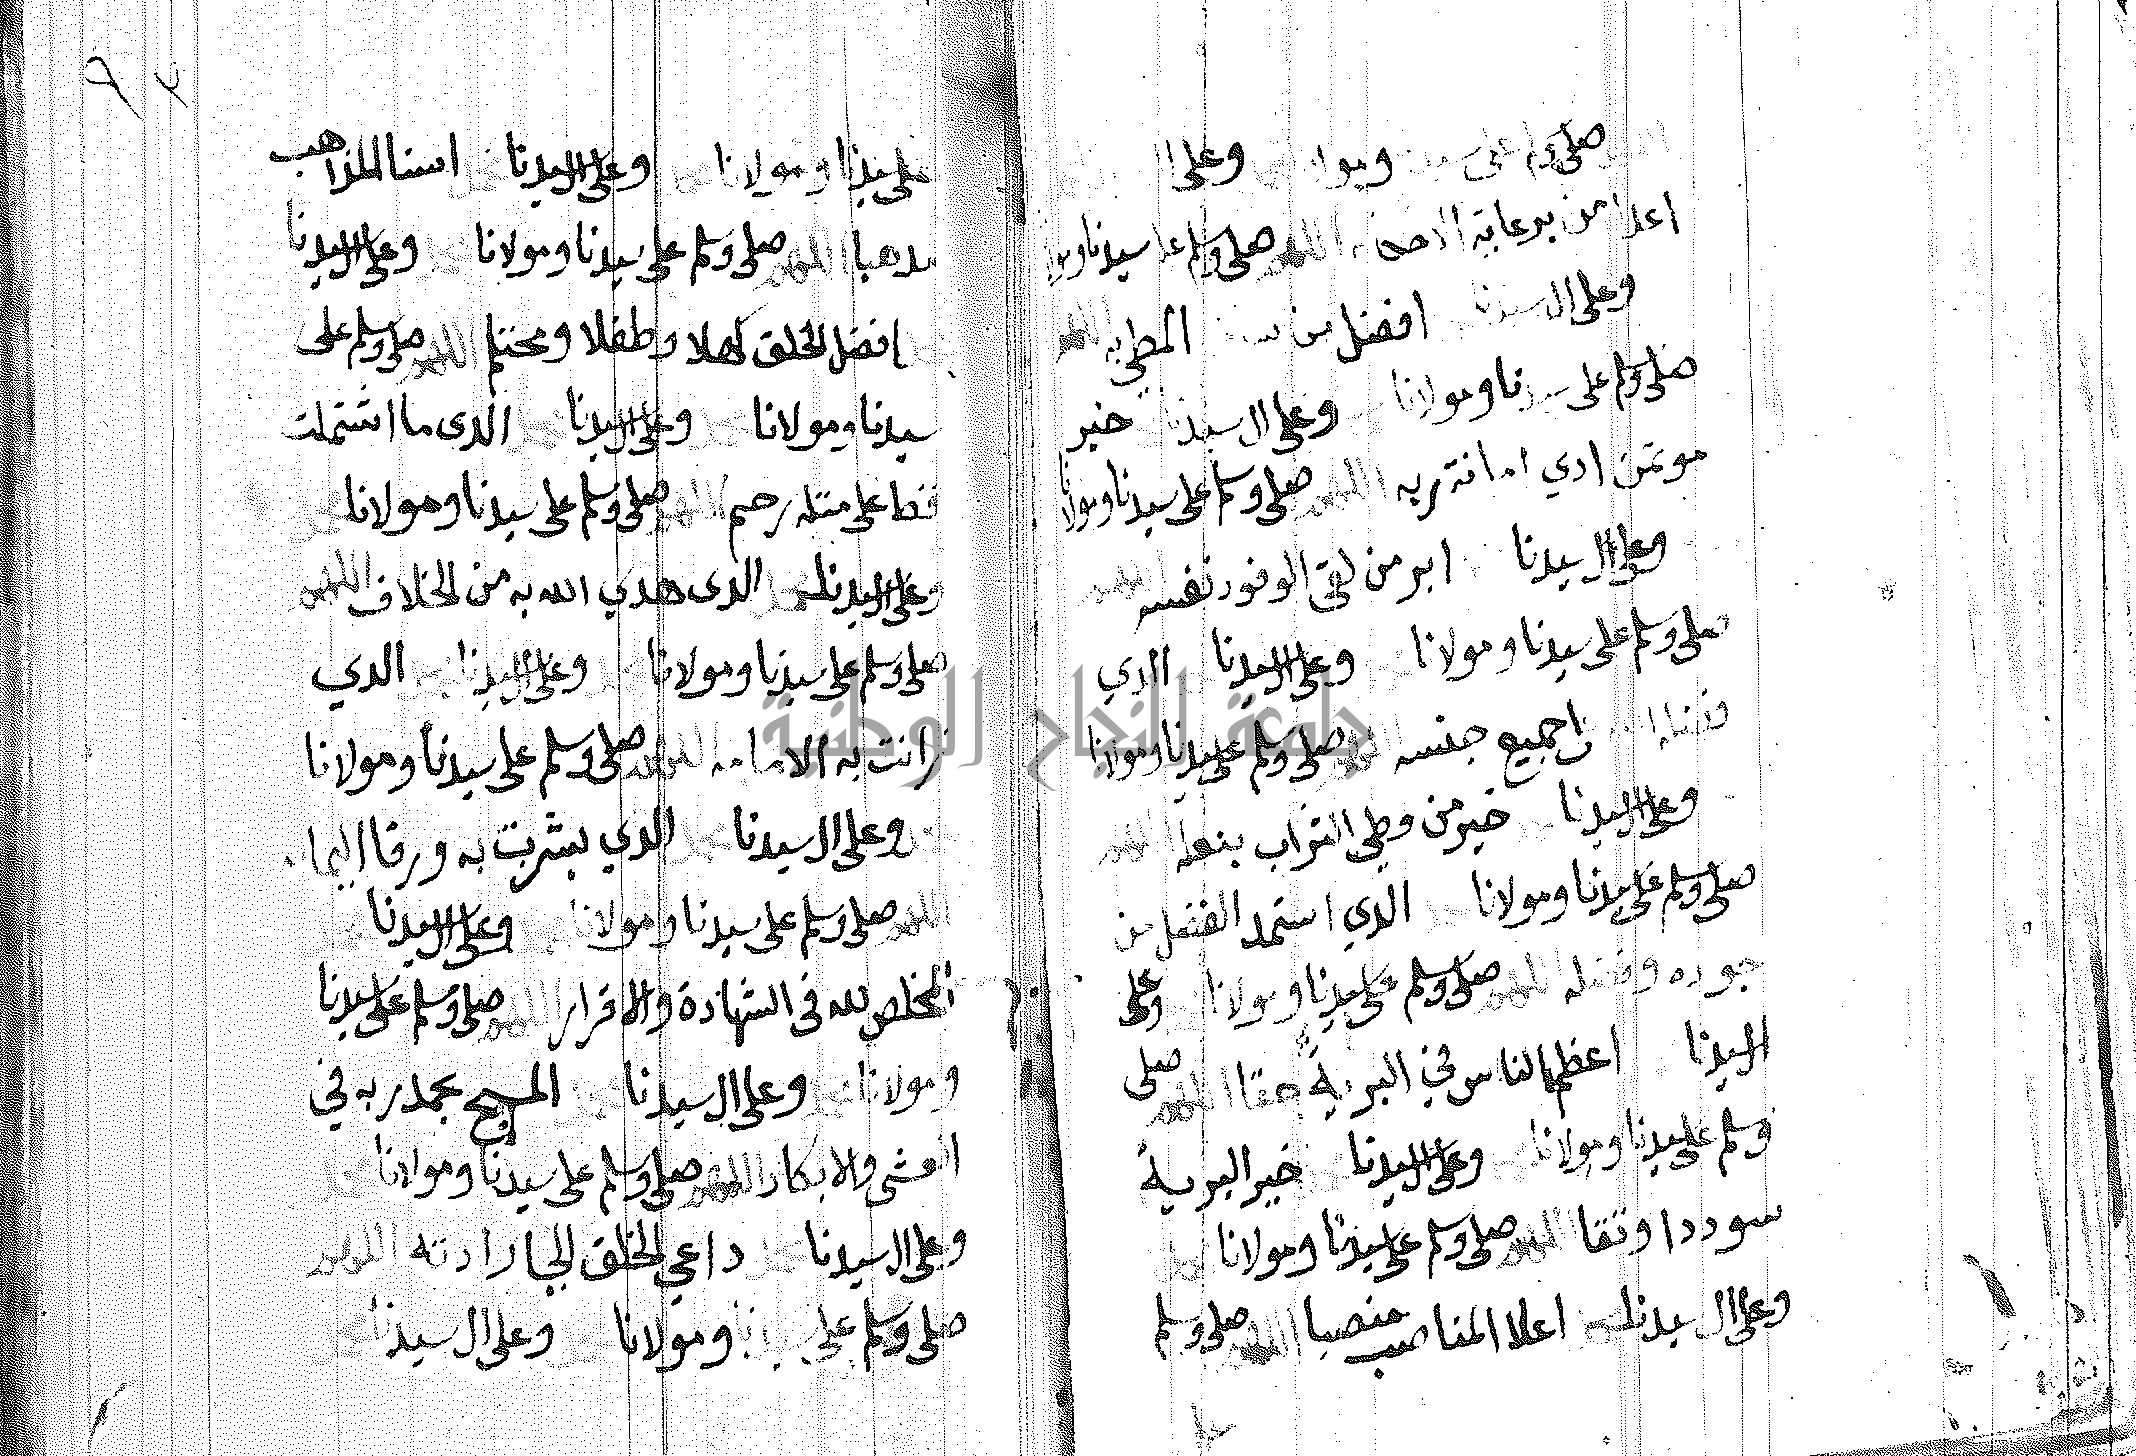 صلى وسلم على ومولا وعلى ال
اعلا من برعاية الله صلى وسلم على سيدنا ومو
وعلى ال سيدنا افضل من المطي به اللهم
صلى وسلم على سيدنا ومولانا وعلى ال سيدنا خير
موتمن ادي امانة ربه اللهم صلى وسلم على سيدنا ومولانا
وعلى ال سيدنا ابر من لقي الوفود بنفسه اللهم
صلى وسلم على سيدنا ومولانا وعلى ال سيدنا الدي
جميع جنسه اللهم صلى وسلم على سيدنا ومولانا
وعلى ال سيدنا خير من وطي التراب بنعله اللهم
صلى وسلم على سيدنا ومولانا الدي استمد الفضل من
جوده وفضله اللهم صلى وسلم على سيدنا ومولانا وعلى
ال سيدنا اعظم الناس في البرية حقا اللهم صلى
وسلم على سيدنا ومولانا وعلى ال سيدنا خير البرية
سوددا وتقا اللهم صلى وسلم على سيدنا ومولانا
وعلى ال سيدنا محمد اعلا المناصب منصبا اللهم صلى وسلم
٩٣
على سيدنا ومولانا وعلى ال سيدنا اسنا المذاهب
مدهبا اللهم صلى وسلم على سيدنا ومولانا وعلى ال سيدنا
افضل الخلق كهلا وطفلا ومحتلم اللهم صلى وسلم على
سيدنا ومولانا وعلى ال سيدنا الدى ما اشتملت
قط على مثله رحم اللهم صلى وسلم على سيدنا ومولانا
وعلى ال سيدنا محمد الدى هدي الله به من الخلاف اللهم
صلى وسلم على سيدنا ومولانا وعلى ال سيدنا الدي
زانت به الامامه اللهم صلى وسلم على سيدنا ومولانا
وعلى ال سيدنا الدي بشرت به ورقا اليمامه
اللهم صلى وسلم على سيدنا ومولانا وعلى ال سيدنا
المخلص لله فى الشهادة والاقرار اللهم صلى وسلم على سيدنا
ومولانا محمد وعلى ال سيدنا المسبح بحمد ربه في
العشى والابكار اللهم صلى وسلم على سيدنا ومولانا
وعلى ال سيدنا داعي الخلق الي ارادته اللهم
صلى وسلم على سيدنا ومولانا وعلى ال سيدنا
جامعة النجاح الوطنية